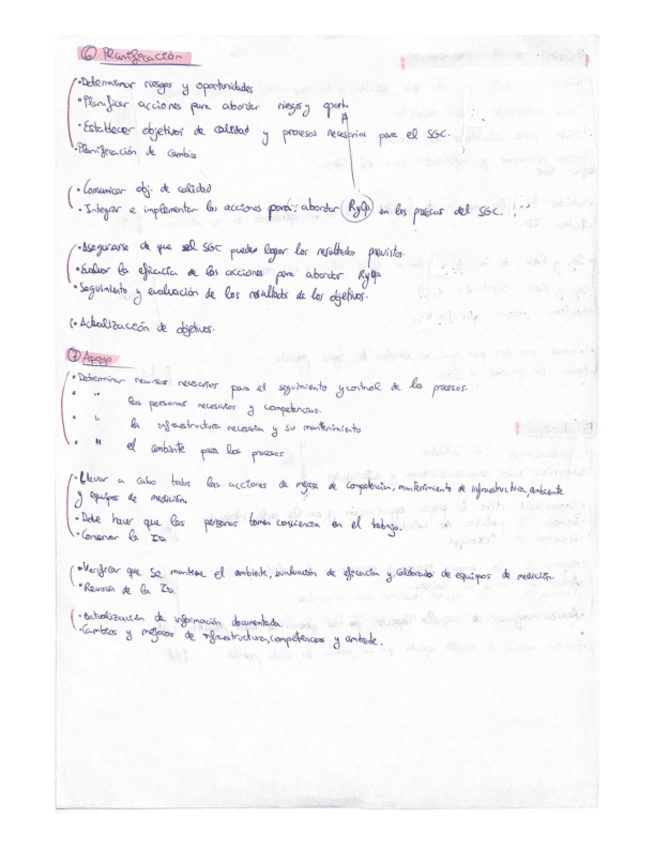 ⑥ Planificación
• Determinar riesgos y oportunidades
• Planificar acciones para abordar riesgos y oport.
• Establecer objetivos de calidad y procesos necesarios para el SGC.
• Planificación de cambio
• Comunicar obj. de calidad
• Integrar e implementar las acciones para abordar RyOp en los procesos del SGC.
• Asegurarse de que el SGC pueden lograr los resultados previstos.
• Evaluar la eficacia de las acciones para abordar RyOp
• Seguimiento y evaluación de los resultados de los objetivos.
• Actualización de objetivos.
⑦ Apoyo
• Determinar recursos necesarios para el seguimiento y control de los procesos.
• " las personas necesarios y competencias.
• " la infraestructura necesaria y su mantenimiento
• " el ambiente para los procesos
• Llevar a cabo todas las acciones de mejora de competencias, mantenimiento de infraestructura, ambiente
y equipos de medición.
• Debe hacer que las personas tomen conciencia en el trabajo.
• Conservar la ID
• Verificar que se mantiene el ambiente, evaluación de eficacia y calibrado de equipos de medición.
• Revisión de la ID.
• Actualización de información documentada.
• Cambios y mejoras de infraestructura, competencias y ambiente.